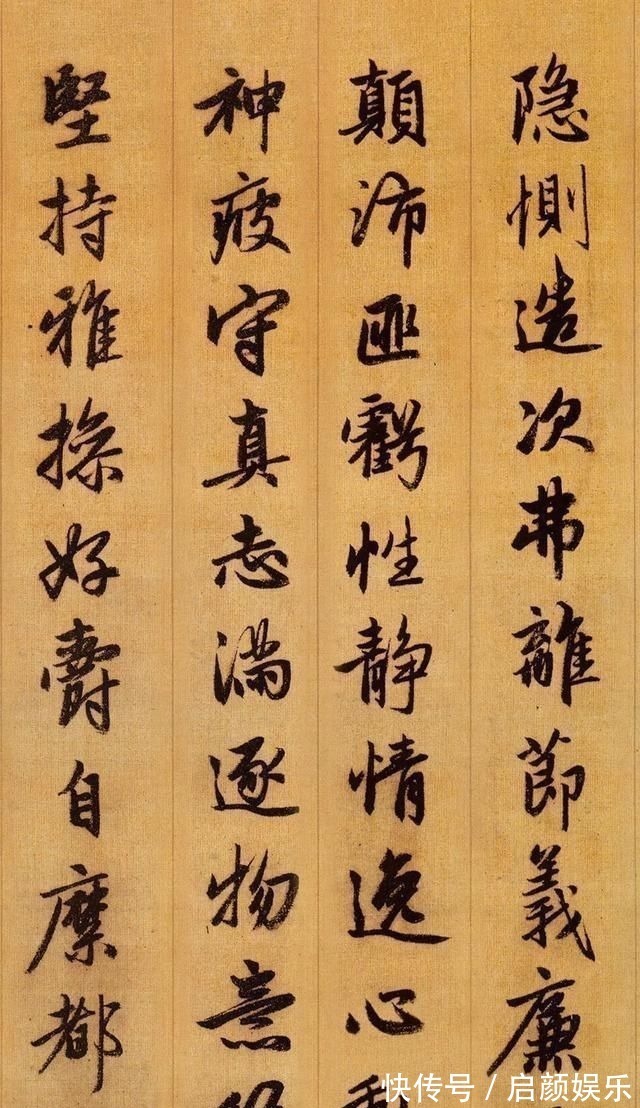 隐惻造次弗離節義廉
顛沛匪虧性静情逸心
神疲守真志満逐物意
堅持雅操好爵自縻都
快传号/启颜娱乐